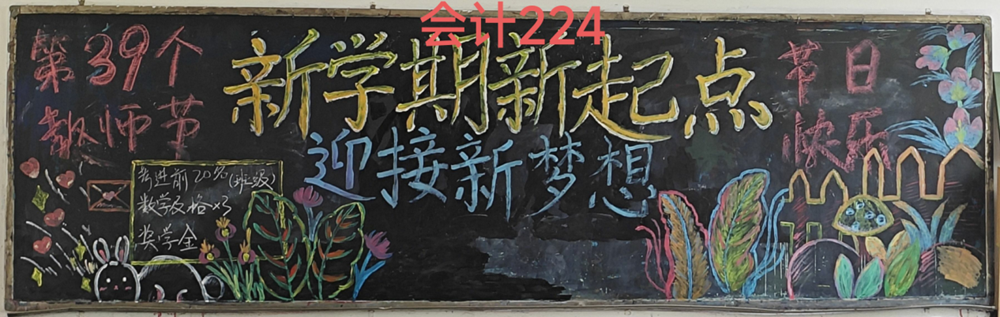 会计224
第39个
教师节
新学期新起点
迎接新梦想
节日
快乐
考进前20%(班级)
数学及格×3
奖学金